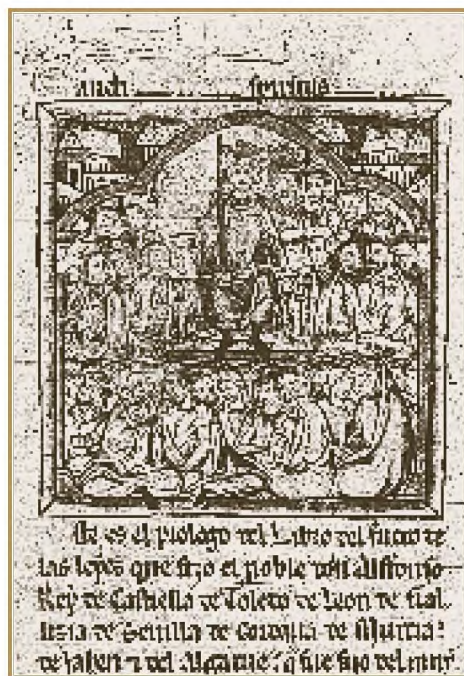 es el prologo del Libro del fuero de
las leyes que fizo el noble don Alffonso
Rey de Castiella de Toledo de Leon de Gal
lizia de Seuilla de Cordoua de Murcia
de Jahen del Algarue que fue fijo del muy